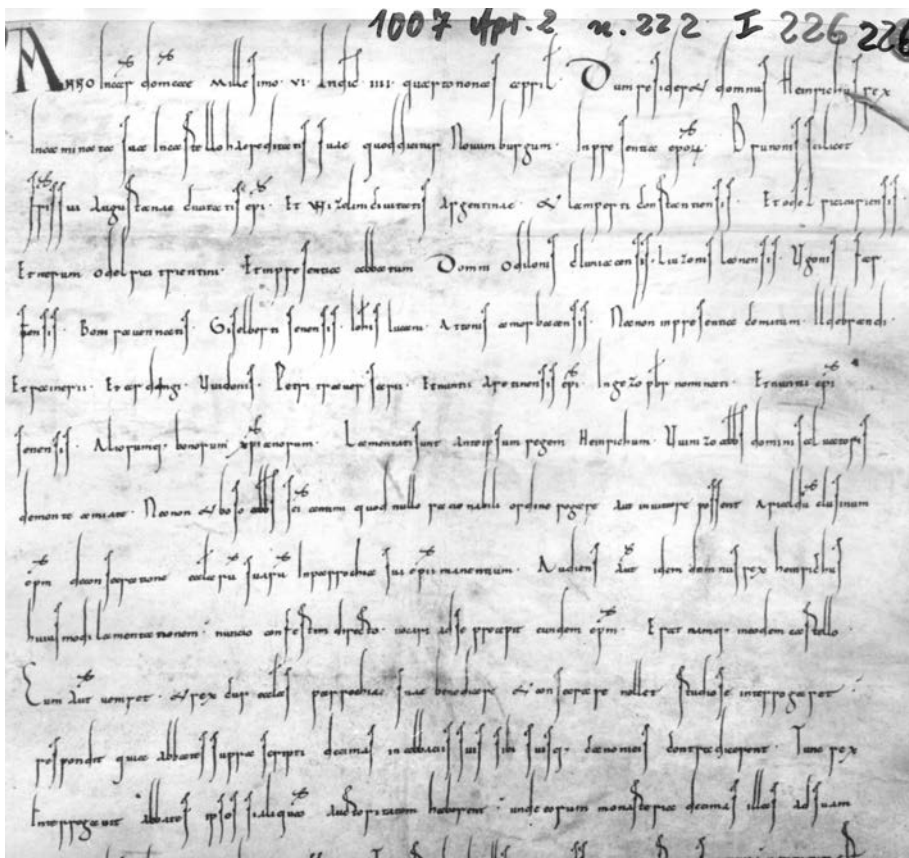 1007 Apr. 2 n. 222 I 226 226
Anno Incar domicae Millesimo VI Indic IIII quarto nonas april Dum resideret domnus Heinrichus rex
In caminata sua In castello haereditatis suae quod dicitur Novum burgum In presentia epor Brunonis scilicet
sui Augustanae civitatis epi Et Wizelini civitatis Argentinae & Lamperti constantiensis Et odel
Et nerum odelrici trientini Et in presentia abbatum Domni Odilonis cluniacensis Liuzonis leonensis Ugonis far
fensis Bom ravennatis Giselberti senensis lucani Attonis Necnon in presentia comitum Ildebrandi
Et rainerii Et Uuidonis Petri traversarii Et nuntii Aretinensis epi Ingezo pbr nominati Et nuntii epi
senensis Aliorumq bonorum xpianorum Lamentati sunt ante ipsum regem Heinrichum Uuinizo abbs domini salvatoris
de monte amiate Necnon & boso abbs sci antimi quod nullo racionabili ordine regere aut invitare possent Arialdu clusinum
epm de consecratione ecclaru suaru In parrochia sui epii manentium Audiens aut idem domnus rex heinrichus
huiusmodi lamentationem nuncio confestim directo vocari ad se precepit eundem epm Erat namq in eodem castello
Cum aut veniret & rex cur ecclas parrochiae suae benedicere & consecrare nollet studiose interrogaret
respondit quia abbates supra scripti decimas in abbaciis suis sibi suisq canonicis contradicerent Tunc rex
Interrogavit abbates ipsos si aliqua auctoritatem haberent unde eorum monasteria decimas illas ad suam